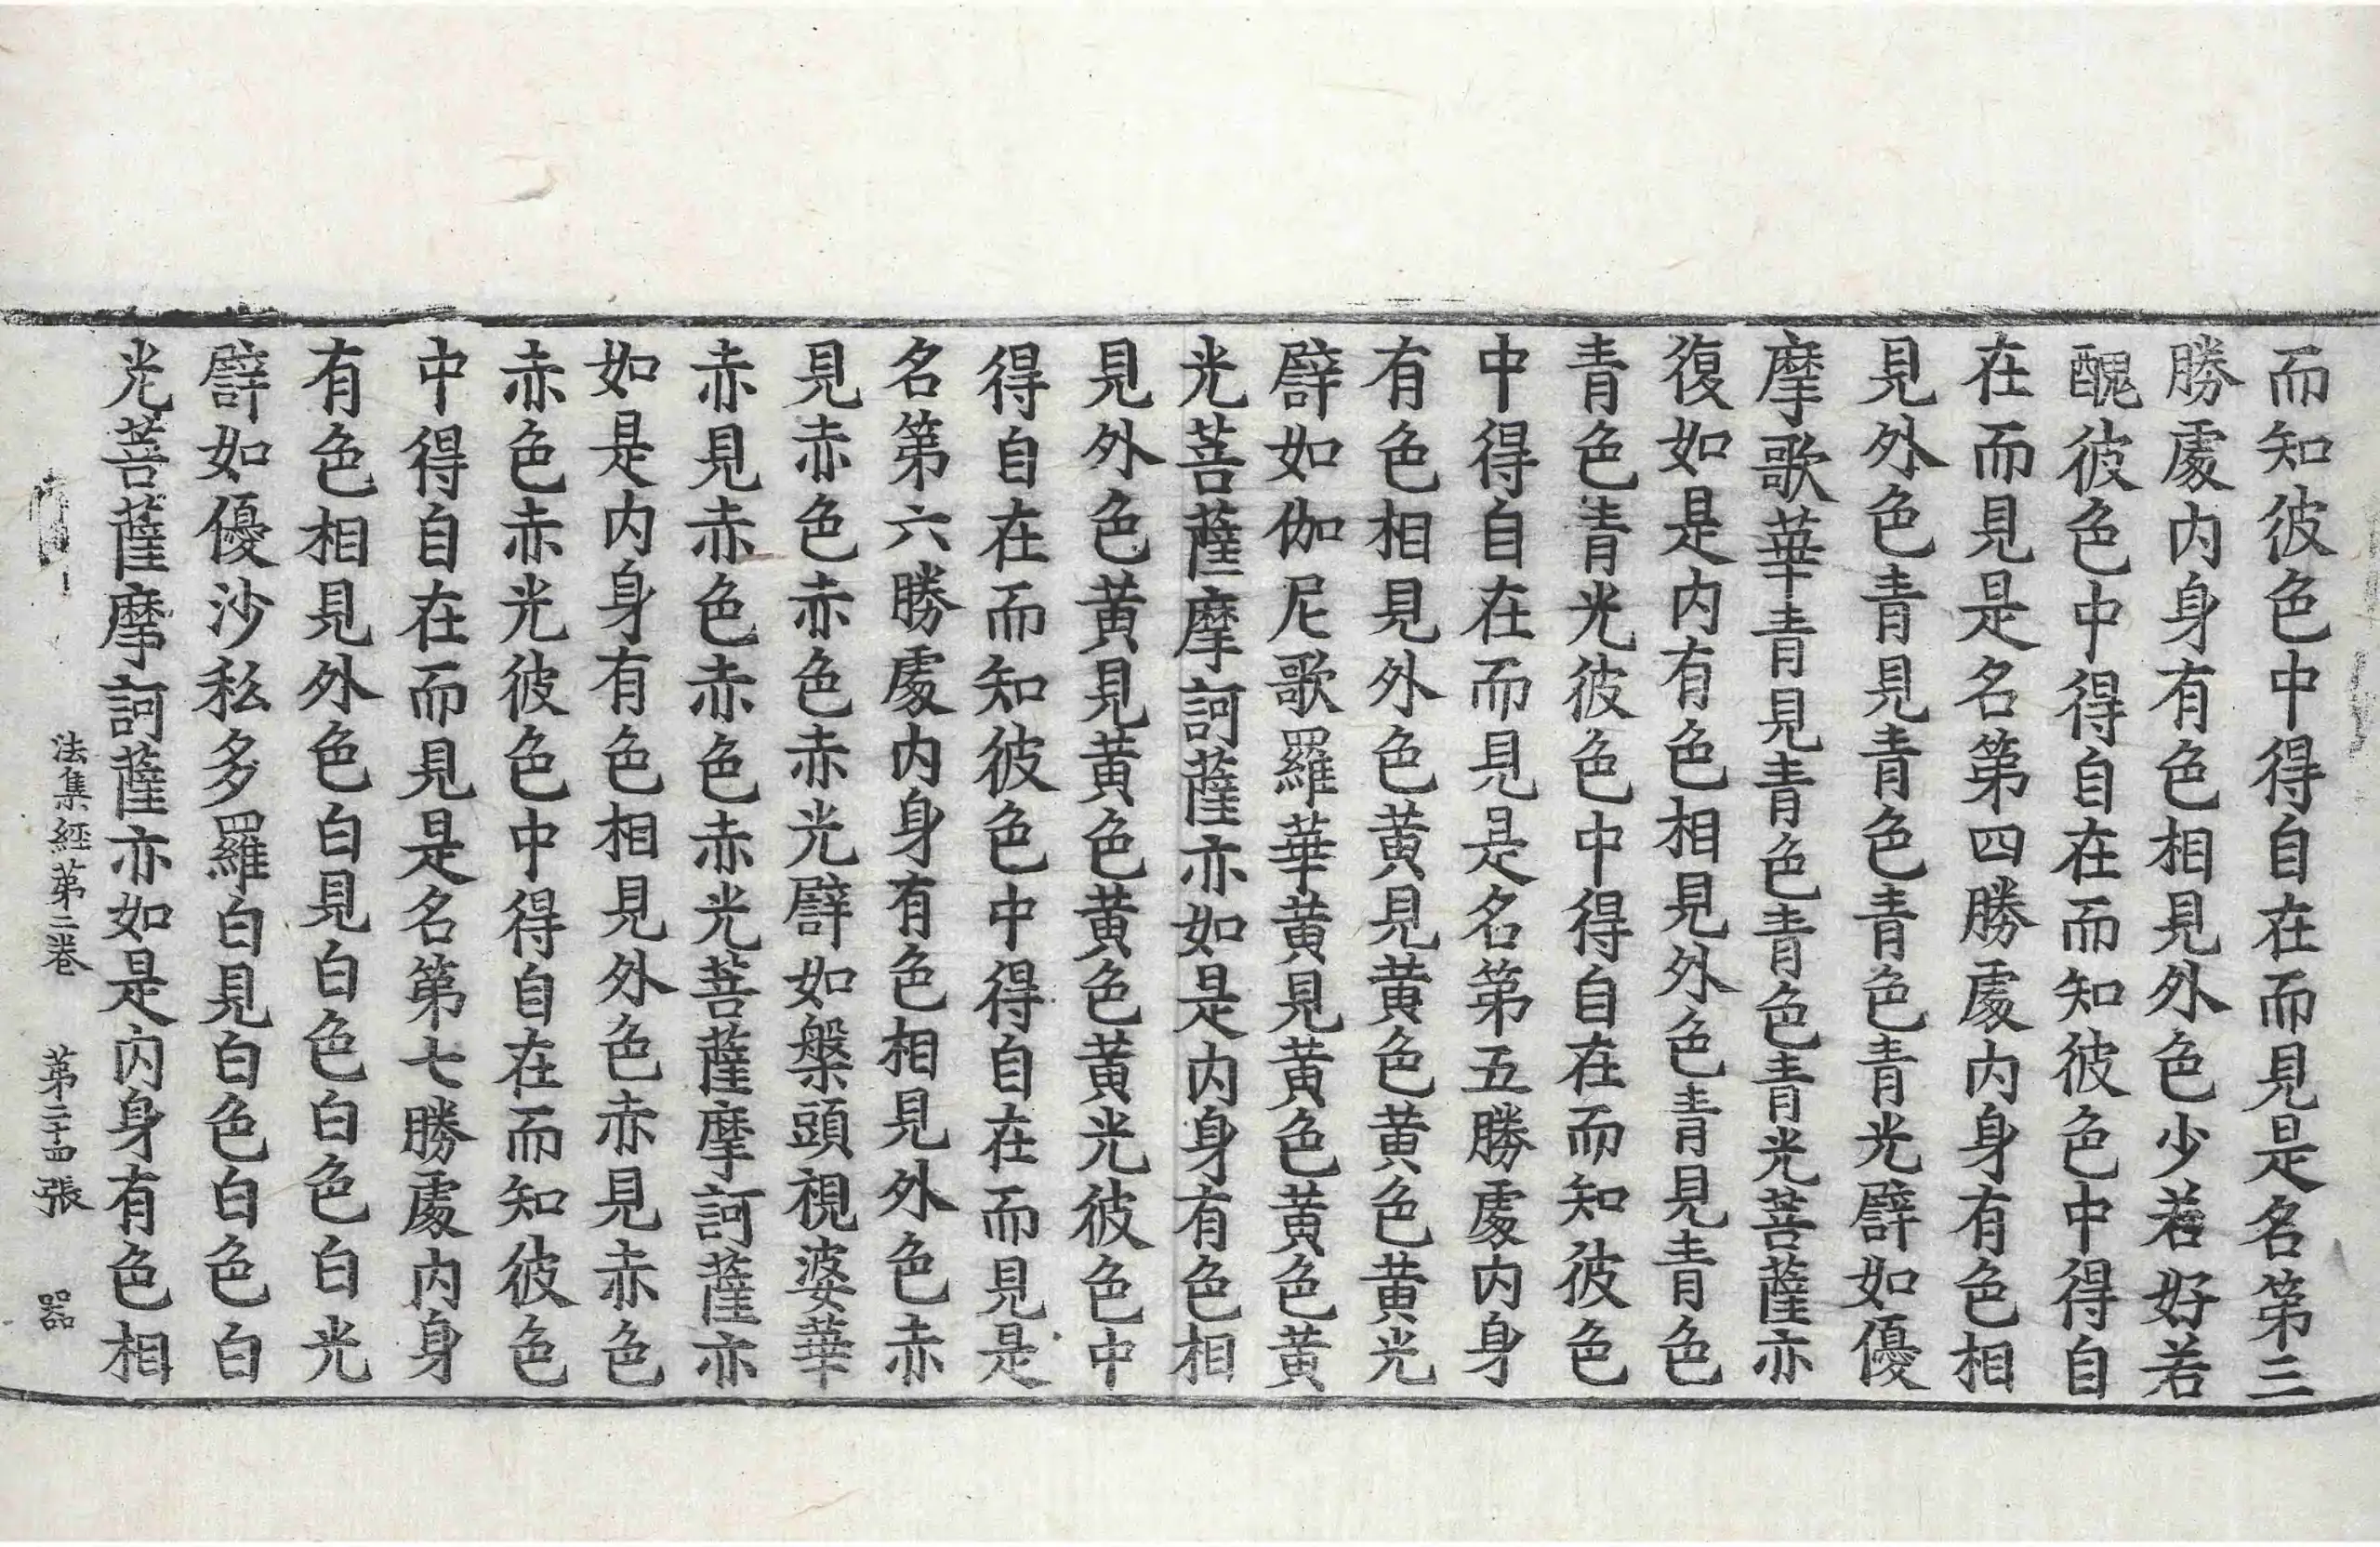 而知彼色中得自在而見是名第三
勝處内身有色相見外色少若好若
醜彼色中得自在而知彼色中得自
在而見是名第四勝處内身有色相
見外色青見青色青色青光譬如優
摩歌華青見青色青色青光菩薩亦
復如是内有色相見外色青見青色
青色青光彼色中得自在而知彼色
中得自在而見是名第五勝處内身
有色相見外色黄見黄色黄色黄光
譬如伽尼歌羅華黄見黄色黄色黄
光菩薩摩訶薩亦如是内身有色相
見外色黄見黄色黄色黄光彼色中
得自在而知彼色中得自在而見是
名第六勝處内身有色相見外色赤
見赤色赤色赤光譬如槃頭視婆華
赤見赤色赤色赤光菩薩摩訶薩亦
如是内身有色相見外色赤見赤色
赤色赤光彼色中得自在而知彼色
中得自在而見是名第七勝處内身
有色相見外色白見白色白色白光
譬如優沙私多羅白見白色白色白
光菩薩摩訶薩亦如是内身有色相
法集經第二卷 第二十四張 器